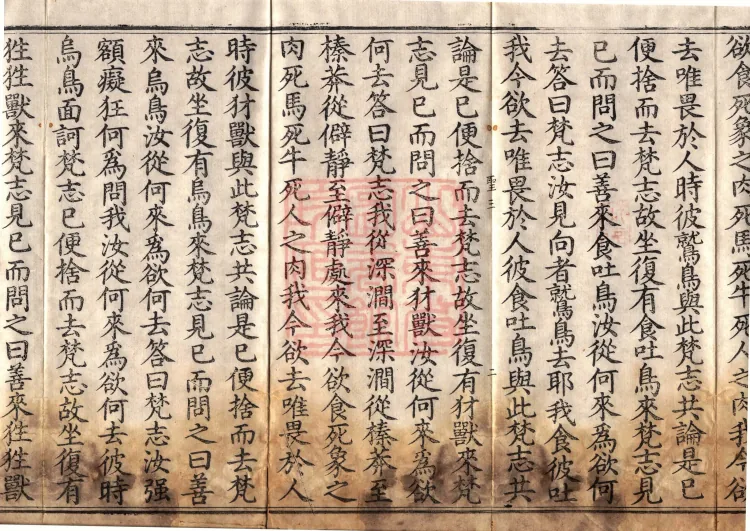 欲食死象之肉死馬死牛死人之肉我今欲
去唯畏於人時彼鷲鳥與此梵志共論是已
便捨而去梵志故坐復有食吐鳥來梵志見
已而問之曰善來食吐鳥汝從何來爲欲何
去答曰梵志汝見向者鷲鳥去耶我食彼吐
我今欲去唯畏於人彼食吐鳥與此梵志共
論是已便捨而去梵志故坐復有犲獸來梵
志見已而問之曰善來犲獸汝從何來爲欲
何去答曰梵志我從深澗至深澗從榛莽至
榛莽從僻靜至僻靜處來我今欲食死象之
肉死馬死牛死人之肉我今欲去唯畏於人
時彼犲獸與此梵志共論是已便捨而去梵
志故坐復有烏鳥來梵志見已而問之曰善
來烏鳥汝從何來爲欲何去答曰梵志汝强
額癡狂何爲問我汝從何來爲欲何去彼時
烏鳥面訶梵志已便捨而去梵志故坐復有
狌狌獸來梵志見已而問之曰善來狌狌獸